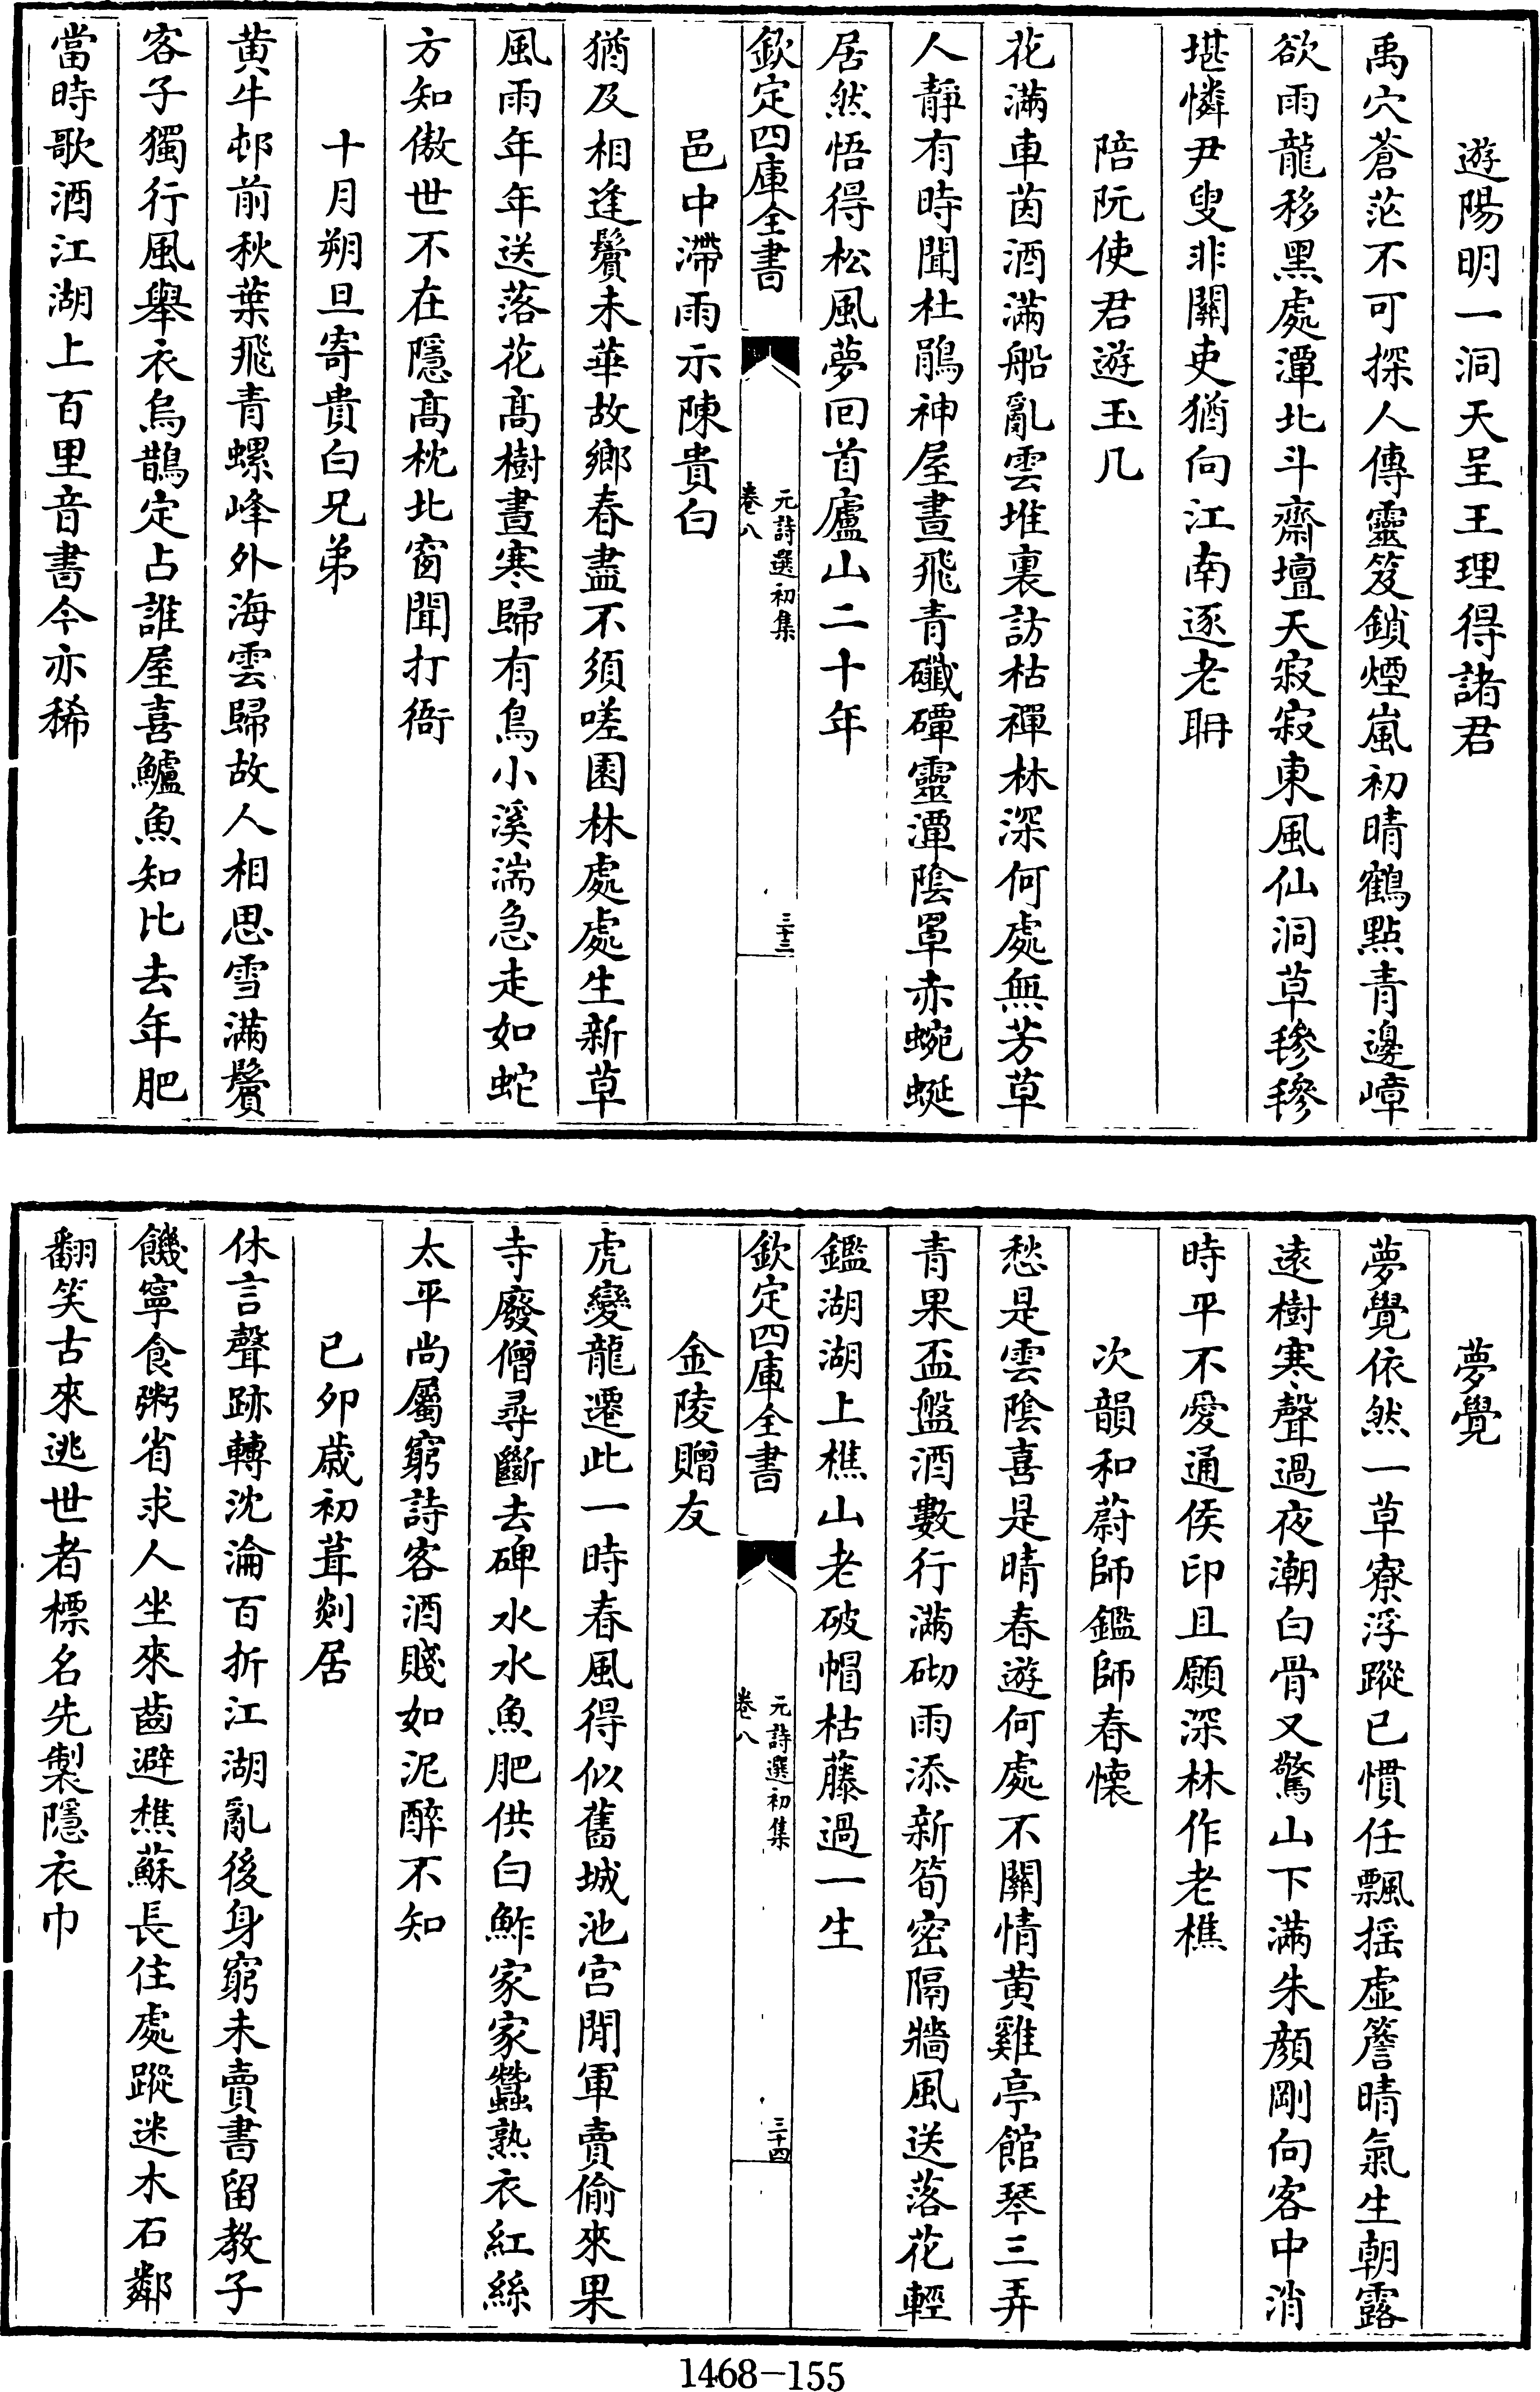 遊陽明一洞天呈王理得諸君
禹穴蒼茫不可探人傳靈笈鎖煙嵐初晴鶴點青邊嶂
欲雨龍移黑處潭北斗齋壇天寂寂東風仙洞草毿毿
堪憐尹叟非關吏猶向江南逐老聃
陪阮使君遊玉几
花滿車茵酒滿船亂雲堆裏訪枯禪林深何處無芳草
人靜有時聞杜鵑神屋晝飛青礮磹靈潭陰罩赤蜿蜒
居然悟得松風夢回首廬山二十年
欽定四庫全書
元詩選初集
卷八
三十三
邑中滯雨示陳貴白
猶及相逢鬢未華故鄉春盡不須嗟園林處處生新草
風雨年年送落花髙樹晝寒歸有鳥小溪湍急走如蛇
方知傲世不在隱髙枕北窗聞打衙
十月朔旦寄貴白兄弟
黄牛邨前秋葉飛青螺峰外海雲歸故人相思雪滿鬢
客子獨行風舉衣烏鵲定占誰屋喜鱸魚知比去年肥
當時歌酒江湖上百里音書今亦稀
夢覺
夢覺依然一草寮浮蹤已慣任飄揺虛簷晴氣生朝露
遠樹寒聲過夜潮白骨又驚山下滿朱顔剛向客中消
時平不愛通侯印且願深林作老樵
次韻和蔚師鑑師春懐
愁是雲陰喜是晴春遊何處不關情黄雞亭館琴三弄
青果盃盤酒數行滿砌雨添新筍密隔牆風送落花輕
鑑湖湖上樵山老破帽枯藤過一生
欽定四庫全書
元詩選初集
卷八
三十四
金陵贈友
虎變龍遷此一時春風得似舊城池宫閒軍賣偷來果
寺廢僧尋斷去碑水水魚肥供白鮓家家蠶熟衣紅絲
太平尚屬窮詩客酒賤如泥醉不知
已卯歲初葺剡居
休言聲跡轉沈淪百折江湖亂後身窮未賣書留教子
饑寧食粥省求人坐來齒避樵蘇長住處蹤迷木石鄰
翻笑古來逃世者標名先製隱衣巾
1468-155